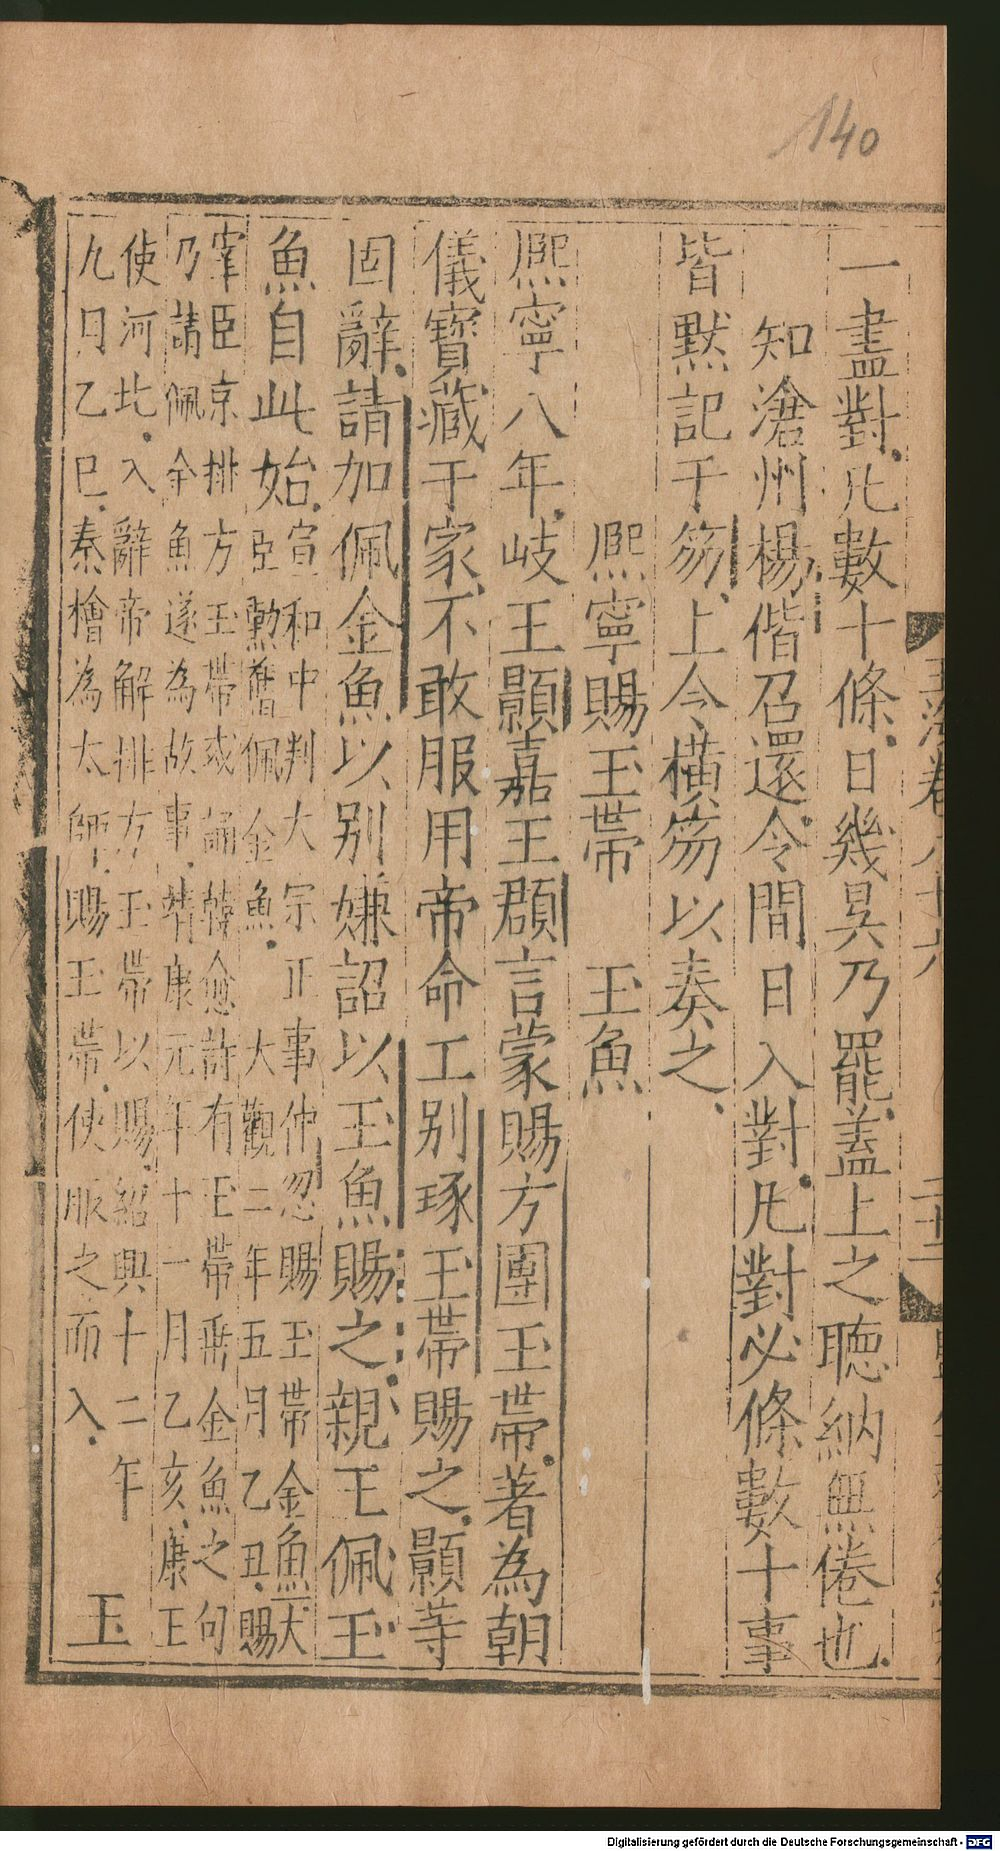 140
一盡對凡數十條日幾昃乃罷蓋上之聽納無倦也
知滄州楊偕召還令間日入對凡對必條數十事
皆默記于笏上今橫笏以奏之
熙寧賜玉帶 玉魚
熙寧八年岐王顥嘉王頵言蒙賜方團玉帶著為朝
儀寶藏于家不敢服用帝命工别琢玉帶賜之顥等
固辭請加佩金魚以别嫌詔以玉魚賜之親王佩玉
魚自此始
宣和中判大宗正事仲忽賜玉帶金魚大
臣勳舊佩金魚 大觀二年五月乙丑賜
宰臣京排方玉帶或誦韓愈詩有玉帶垂金魚之句
乃請佩金魚遂為故事靖康元年十一月乙亥康王
使河北入辭帝解排方玉帶以賜紹興十二年
九月乙巳秦檜為太師賜玉帶使服之而入 玉
玉海卷八十六 二十二
Digitalisierung gefördert durch die Deutsche Forschungsgemeinschaft - DFG